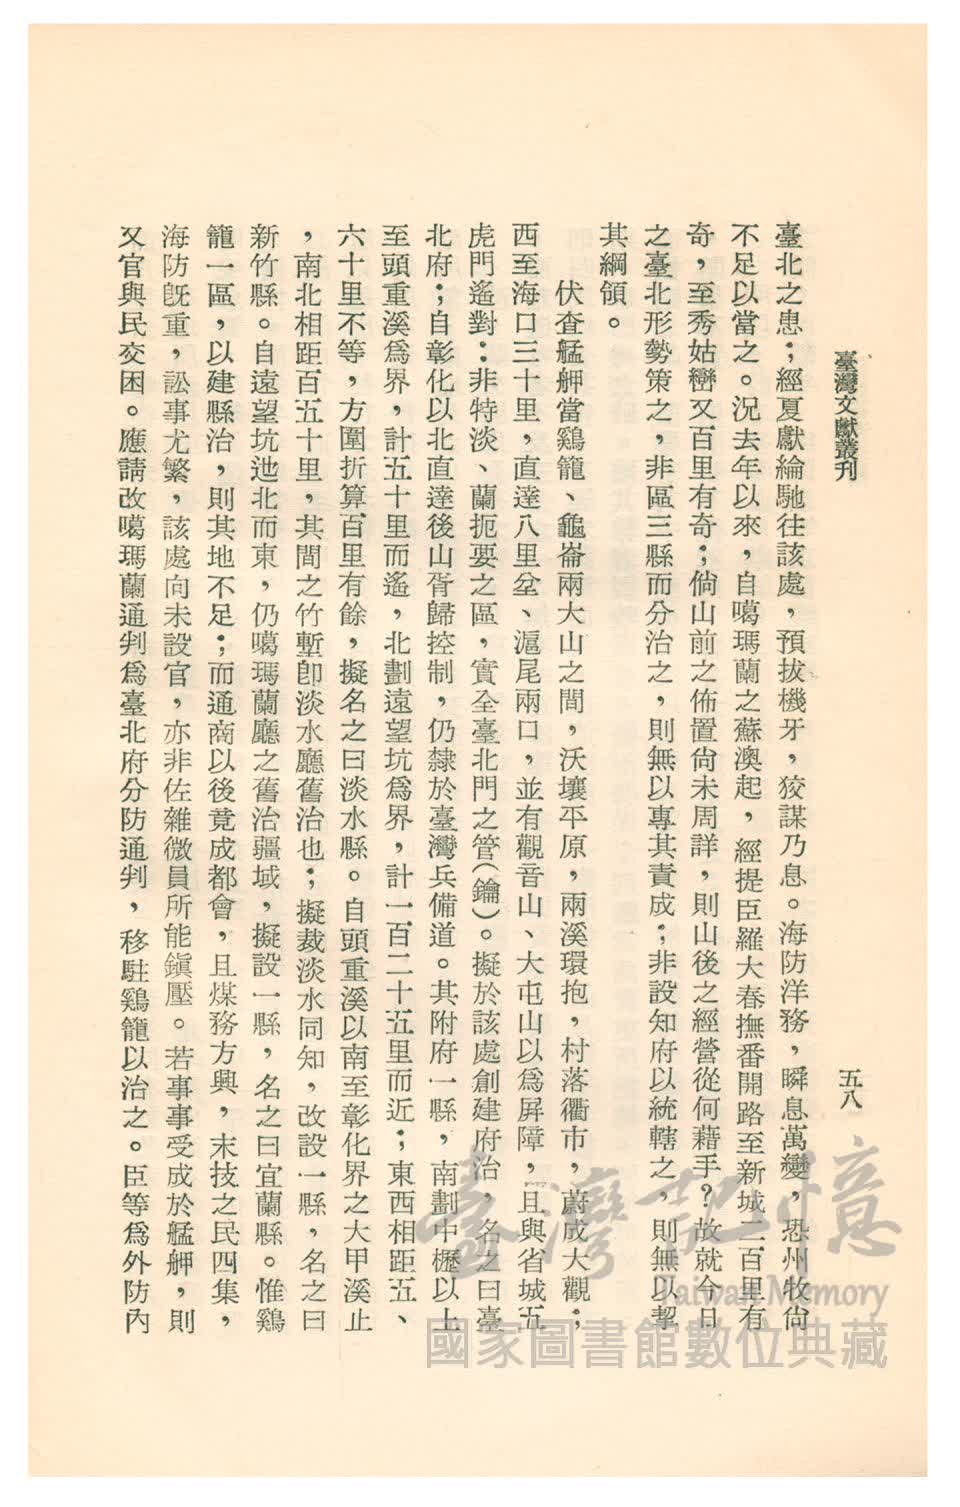 臺灣文獻叢刊
五八
臺北之患；經夏獻綸馳往該處，預拔機牙，狡謀乃息。海防洋務，瞬息萬變，恐州牧尙
不足以當之。況去年以來，自噶瑪蘭之蘇澳起，經提臣羅大春撫番開路至新城二百里有
奇，至秀姑巒又百里有奇；倘山前之佈置尙未周詳，則山後之經營從何藉手？故就今日
之臺北形勢策之，非區三縣而分治之，則無以專其責成；非設知府以統轄之，則無以挈
其綱領。
伏查艋舺當鷄籠、龜崙兩大山之間，沃壤平原，兩溪環抱，村落衢市，蔚成大觀；
西至海口三十里，直達八里坌、滬尾兩口，並有觀音山、大屯山以爲屛障，且與省城五
虎門遙對：非特淡、蘭扼要之區，實全臺北門之管(鑰)。擬於該處創建府治，名之曰臺
北府；自彰化以北直達後山胥歸控制，仍隸於臺灣兵備道。其附府一縣，南劃中櫪以上
至頭重溪爲界，計五十里而遙，北劃遠望坑爲界，計一百二十五里而近；東西相距五、
六十里不等，方圍折算百里有餘，擬名之曰淡水縣。自頭重溪以南至彰化界之大甲溪止
，南北相距百五十里，其間之竹塹卽淡水廳舊治也；擬裁淡水同知，改設一縣，名之曰
新竹縣。自遠望坑迆北而東，仍噶瑪蘭廳之舊治疆域，擬設一縣，名之曰宜蘭縣。惟鷄
籠一區，以建縣治，則其地不足；而通商以後竟成都會，且煤務方興，末技之民四集，
海防旣重，訟事尤繁，該處向未設官，亦非佐雜微員所能鎭壓。若事事受成於艋舺，則
又官與民交困。應請改噶瑪蘭通判爲臺北府分防通判，移駐鷄籠以治之。臣等爲外防內
臺灣記憶
Taiwan Memory
國家圖書館數位典藏